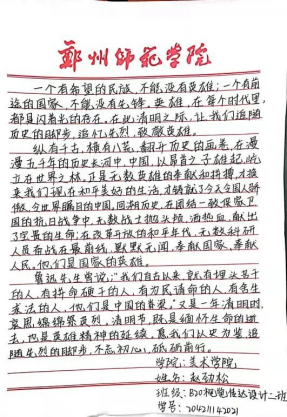 郑州师范学院
一个有希望的民族,不能没有英雄;一个有前
途的国家,不能没有先锋。英雄,在每个时代里,
都是闪着光的存在。在此清明之际,让我们追随
历史的脚步,追忆先烈,致敬英雄。
纵有千古,横有八荒,翻开历史的画卷,在漫
漫五千年的历史长河中,中国,以昂首之子雄起,屹
立在世界之林,正是无数英雄的奉献和拼搏,才换
来我们现在和平美好的生活,才铸就了今天令国人骄
傲,令世界瞩目的中国,回溯历史,在团结一致保家卫
国的抗日战争中,无数战士抛头颅,洒热血,献出
了宝贵的生命;在改革开放的和平年代,无数科研
人员奋战在最前线,默默无闻,奉献国家,奉献
人民,他们是国家的英雄。
鲁迅先生曾说:“我们自古以来,就有埋头苦干
的人,有拼命硬干的人,有为民请命的人,有舍身
求法的人,他们是中国的脊梁。”又是一年清明时,
哀思绵绵祭英烈,清明节,既是缅怀生命的逝
去,也是英雄精神的延续,愿我们以史为鉴,追
随先烈的脚步,不忘初心,砥砺前行。
学院:美术学院
姓名:赵劲松
班级:B20视觉传达设计二班
学号: